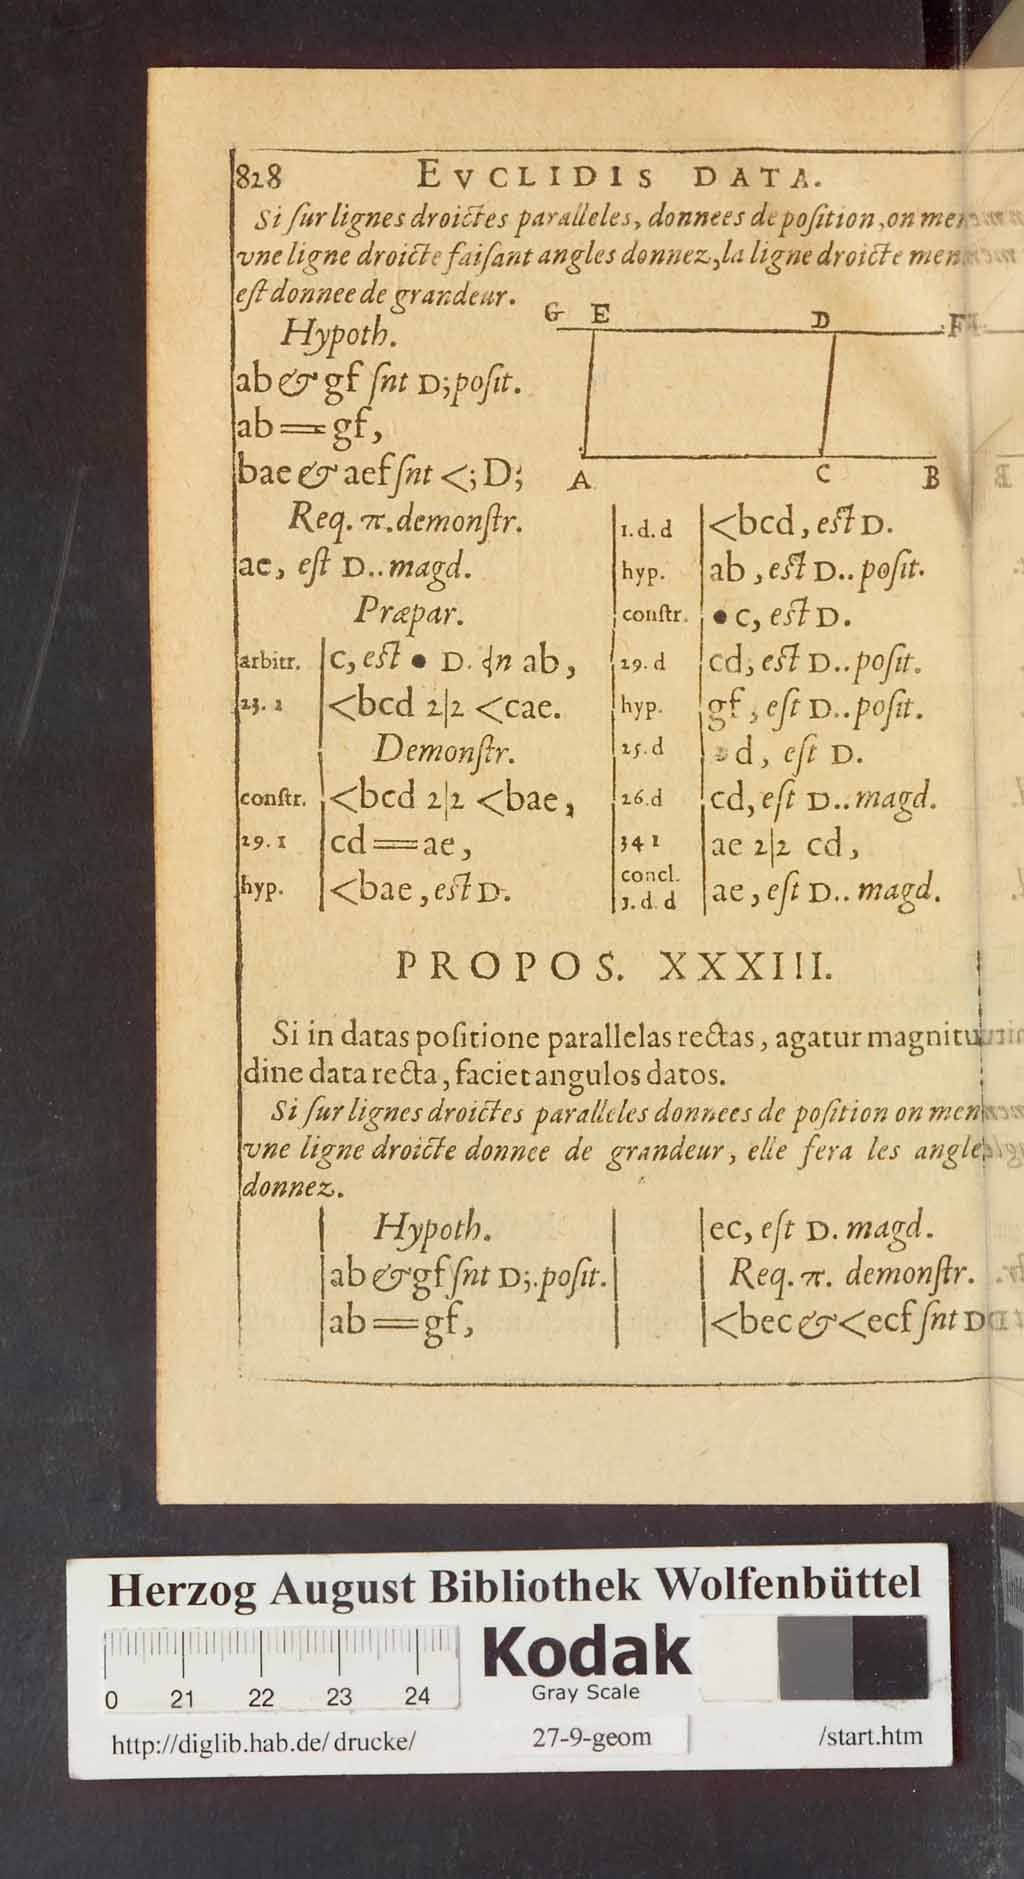 828 EVCLIDIS DATA.
Si sur lignes droictes paralleles, donnees de position, on
vne ligne droicte faisant angles donnez, la ligne droicte
est donnee de grandeur.
G E D F
Hypoth.
ab & gf snt D; posit.
ab == gf,
bae & aef snt <; D;
A C B
Req. π. demonstr.
ae, est D.. magd.
Præpar.
arbitr. c, est • D. in ab,
23. 1 <bcd 2|2 <cae.
Demonstr.
constr. <bcd 2|2 <bae,
29. 1 cd == ae,
hyp. <bae, est D.
1. d. d <bcd, est D.
hyp. ab, est D.. posit.
constr. • c, est D.
29. d cd, est D.. posit.
hyp. gf, est D.. posit.
25. d • d, est D.
26. d cd, est D.. magd.
34 1 ae 2|2 cd,
concl.
1. d. d ae, est D.. magd.
PROPOS. XXXIII.
Si in datas positione parallelas rectas, agatur magnitu
dine data recta, faciet angulos datos.
Si sur lignes droictes paralleles donnees de position on
vne ligne droicte donnee de grandeur, elle fera les angles
donnez.
Hypoth.
ab & gf snt D;. posit.
ab == gf,
ec, est D. magd.
Req. π. demonstr.
<bec & <ecf snt D
Herzog August Bibliothek Wolfenbüttel
Kodak
Gray Scale
0 21 22 23 24
http://diglib.hab.de/drucke/ 27-9-geom /start.htm